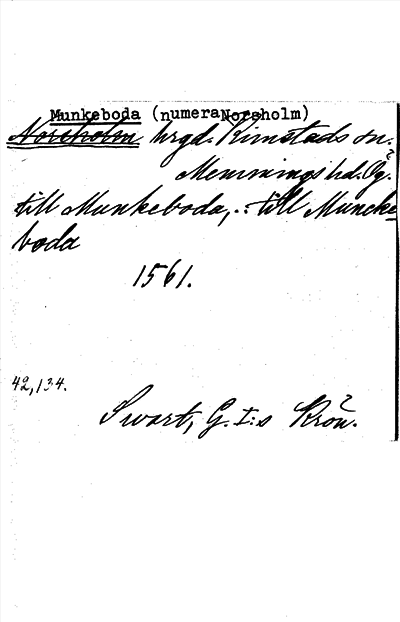 Munkeboda (numera Norsholm)
Norsholm hrgd. Kimstads sn.
Memmings hd. Ög.
till Munkeboda, .: till Muncke-
boda
1561.
42, 134.
Swart, G. I:s Krön.